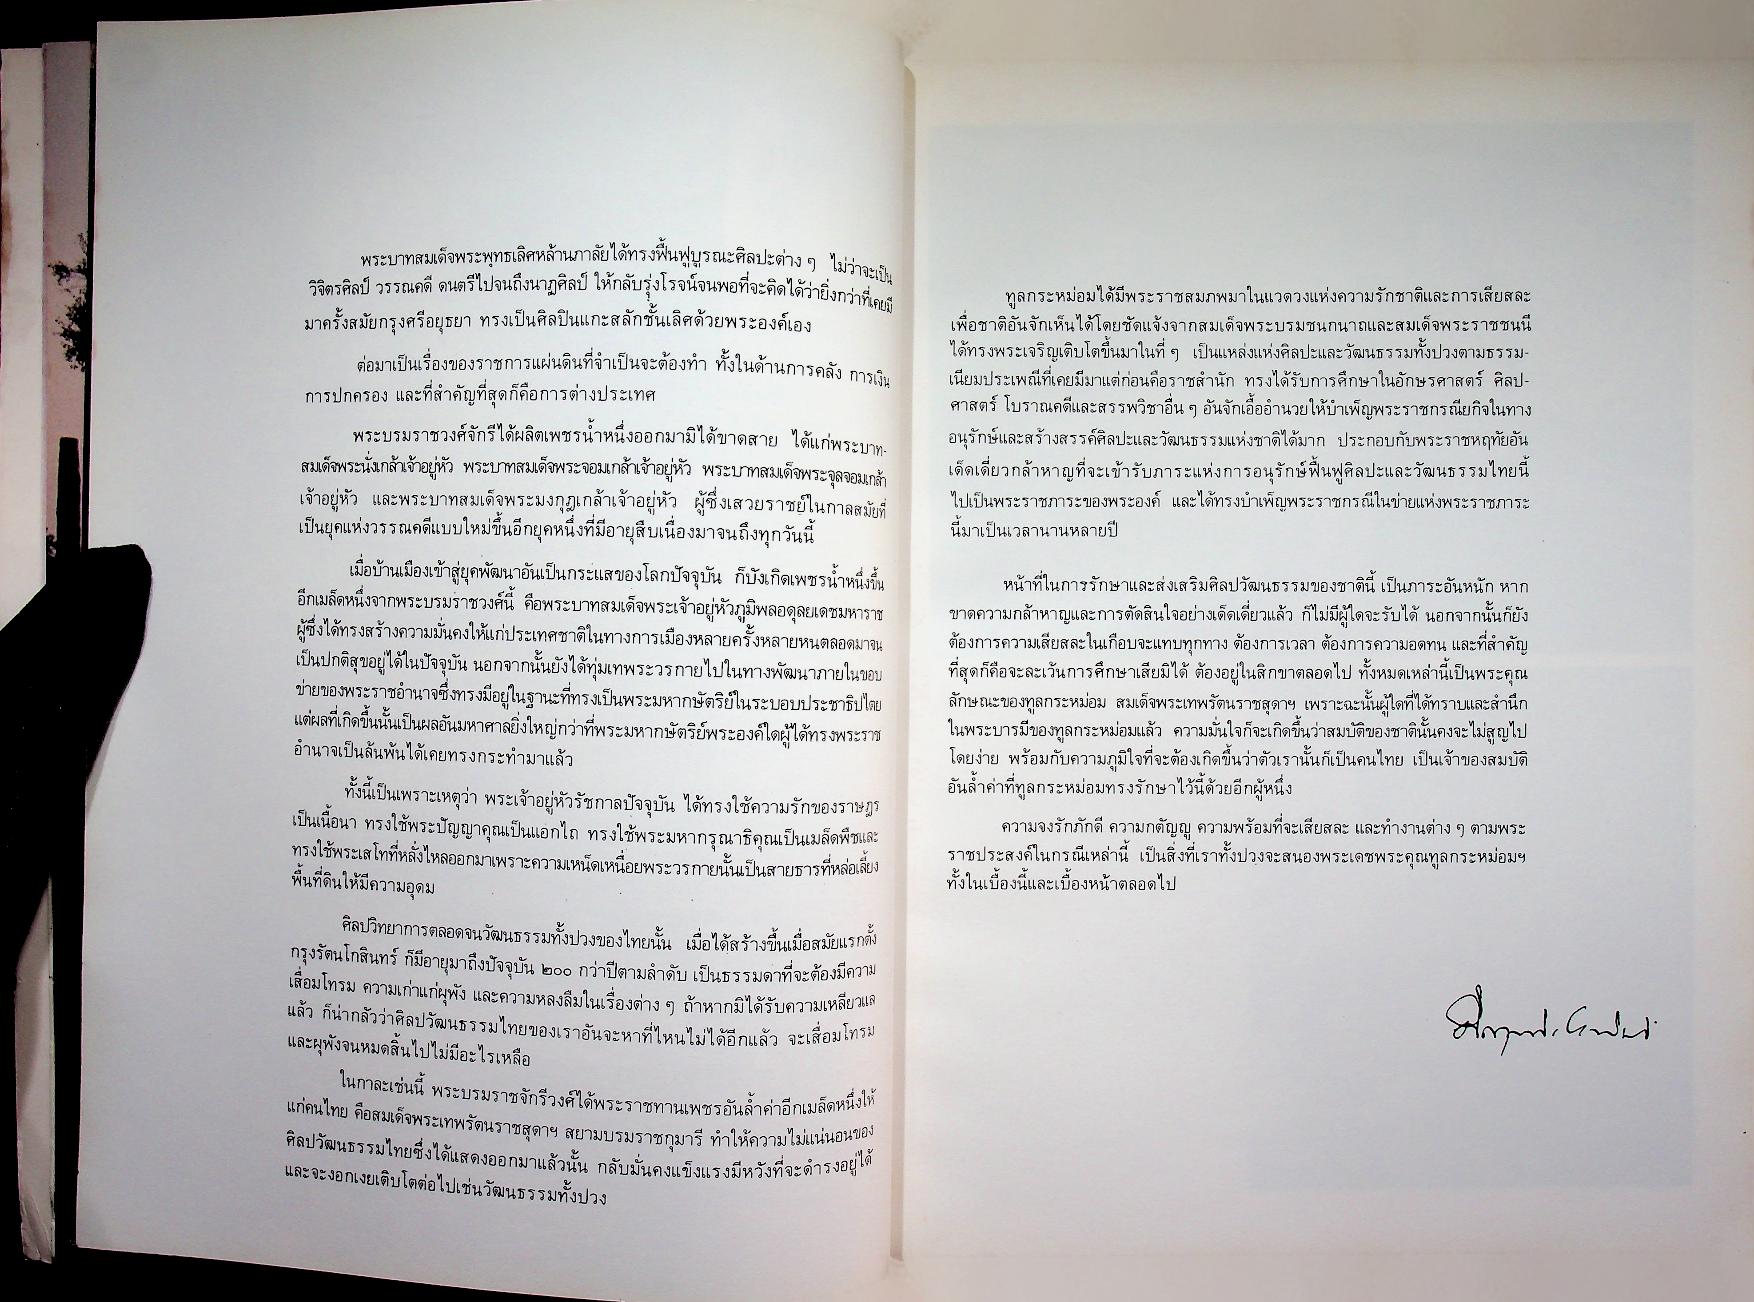 พระบาทสมเด็จพระพุทธเลิศหล้านภาลัยได้ทรงฟื้นฟูบูรณะศิลปะต่าง ๆ ไม่ว่าจะเป็น
วิจิตรศิลป์ วรรณคดี ดนตรีไปจนถึงนาฏศิลป์ ให้กลับรุ่งโรจน์จนพอที่จะคิดได้ว่ายิ่งกว่าที่เคยมี
มาครั้งสมัยกรุงศรีอยุธยา ทรงเป็นศิลปินแกะสลักชั้นเลิศด้วยพระองค์เอง
ต่อมาเป็นเรื่องของราชการแผ่นดินที่จำเป็นจะต้องทำ ทั้งในด้านการคลัง การเงิน
การปกครอง และที่สำคัญที่สุดก็คือการต่างประเทศ
พระบรมราชวงศ์จักรีได้ผลิตเพชรน้ำหนึ่งออกมามิได้ขาดสาย ได้แก่พระบาท-
สมเด็จพระนั่งเกล้าเจ้าอยู่หัว พระบาทสมเด็จพระจอมเกล้าเจ้าอยู่หัว พระบาทสมเด็จพระจุลจอมเกล้า
เจ้าอยู่หัว และพระบาทสมเด็จพระมงกุฎเกล้าเจ้าอยู่หัว ผู้ซึ่งเสวยราชย์ในกาลสมัยที่
เป็นยุคแห่งวรรณคดีแบบใหม่ขึ้นอีกยุคหนึ่งที่มีอายุสืบเนื่องมาจนถึงทุกวันนี้
เมื่อบ้านเมืองเข้าสู่ยุคพัฒนาอันเป็นกระแสของโลกปัจจุบัน ก็บังเกิดเพชรน้ำหนึ่งขึ้น
อีกเมล็ดหนึ่งจากพระบรมราชวงศ์นี้ คือพระบาทสมเด็จพระเจ้าอยู่หัวภูมิพลอดุลยเดชมหาราช
ผู้ซึ่งได้ทรงสร้างความมั่นคงให้แก่ประเทศชาติในทางการเมืองหลายครั้งหลายหนตลอดมาจน
เป็นปกติสุขอยู่ได้ในปัจจุบัน นอกจากนั้นยังได้ทุ่มเทพระวรกายไปในทางพัฒนาภายในขอบ
ข่ายของพระราชอำนาจซึ่งทรงมีอยู่ในฐานะที่ทรงเป็นพระมหากษัตริย์ในระบอบประชาธิปไตย
แต่ผลที่เกิดขึ้นนั้นเป็นผลอันมหาศาลยิ่งใหญ่กว่าที่พระมหากษัตริย์พระองค์ใดผู้ได้ทรงพระราช
อำนาจเป็นล้นพ้นได้เคยทรงกระทำมาแล้ว
ทั้งนี้เป็นเพราะเหตุว่า พระเจ้าอยู่หัวรัชกาลปัจจุบัน ได้ทรงใช้ความรักของราษฎร
เป็นเนื้อนา ทรงใช้พระปัญญาคุณเป็นแอกไถ ทรงใช้พระมหากรุณาธิคุณเป็นเมล็ดพืชและ
ทรงใช้พระเสโทที่หลั่งไหลออกมาเพราะความเหน็ดเหนื่อยพระวรกายนั้นเป็นสายธารที่หล่อเลี้ยง
พื้นที่ดินให้มีความอุดม
ศิลปวิทยาการตลอดจนวัฒนธรรมทั้งปวงของไทยนั้น เมื่อได้สร้างขึ้นเมื่อสมัยแรกตั้ง
กรุงรัตนโกสินทร์ ก็มีอายุมาถึงปัจจุบัน ๒๐๐ กว่าปีตามลำดับ เป็นธรรมดาที่จะต้องมีความ
เสื่อมโทรม ความเก่าแก่ผุพัง และความหลงลืมในเรื่องต่าง ๆ ถ้าหากมิได้รับความเหลียวแล
แล้ว ก็น่ากลัวว่าศิลปวัฒนธรรมไทยของเราอันจะหาที่ไหนไม่ได้อีกแล้ว จะเสื่อมโทรม
และผุพังจนหมดสิ้นไปไม่มีอะไรเหลือ
ในกาละเช่นนี้ พระบรมราชจักรีวงศ์ได้พระราชทานเพชรอันล้ำค่าอีกเมล็ดหนึ่งให้
แก่คนไทย คือสมเด็จพระเทพรัตนราชสุดาฯ สยามบรมราชกุมารี ทำให้ความไม่แน่นอนของ
ศิลปวัฒนธรรมไทยซึ่งได้แสดงออกมาแล้วนั้น กลับมั่นคงแข็งแรงมีหวังที่จะดำรงอยู่ได้
และจะงอกเงยเติบโตต่อไปเช่นวัฒนธรรมทั้งปวง
ทูลกระหม่อมได้มีพระราชสมภพมาในแวดวงแห่งความรักชาติและการเสียสละ
เพื่อชาติอันจักเห็นได้โดยชัดแจ้งจากสมเด็จพระบรมชนกนาถและสมเด็จพระราชชนนี
ได้ทรงพระเจริญเติบโตขึ้นมาในที่ ๆ เป็นแหล่งแห่งศิลปะและวัฒนธรรมทั้งปวงตามธรรม-
เนียมประเพณีที่เคยมีมาแต่ก่อนคือราชสำนัก ทรงได้รับการศึกษาในอักษรศาสตร์ ศิลป-
ศาสตร์ โบราณคดีและสรรพวิชาอื่น ๆ อันจักเอื้ออำนวยให้บำเพ็ญพระราชกรณียกิจในทาง
อนุรักษ์และสร้างสรรค์ศิลปะและวัฒนธรรมแห่งชาติได้มาก ประกอบกับพระราชหฤทัยอัน
เด็ดเดี่ยวกล้าหาญที่จะเข้ารับภาระแห่งการอนุรักษ์ฟื้นฟูศิลปะและวัฒนธรรมไทยนี้
ไปเป็นพระราชภาระของพระองค์ และได้ทรงบำเพ็ญพระราชกรณีในข่ายแห่งพระราชภาระ
นี้มาเป็นเวลานานหลายปี
หน้าที่ในการรักษาและส่งเสริมศิลปวัฒนธรรมของชาตินี้ เป็นภาระอันหนัก หาก
ขาดความกล้าหาญและการตัดสินใจอย่างเด็ดเดี่ยวแล้ว ก็ไม่มีผู้ใดจะรับได้ นอกจากนั้นก็ยัง
ต้องการความเสียสละในเกือบจะแทบทุกทาง ต้องการเวลา ต้องการความอดทน และที่สำคัญ
ที่สุดก็คือจะละเว้นการศึกษาเสียมิได้ ต้องอยู่ในสิกขาตลอดไป ทั้งหมดเหล่านี้เป็นพระคุณ
ลักษณะของทูลกระหม่อม สมเด็จพระเทพรัตนราชสุดาฯ เพราะฉะนั้นผู้ใดที่ได้ทราบและสำนึก
ในพระบารมีของทูลกระหม่อมแล้ว ความมั่นใจก็จะเกิดขึ้นว่าสมบัติของชาตินั้นคงจะไม่สูญไป
โดยง่าย พร้อมกับความภูมิใจที่จะต้องเกิดขึ้นว่าตัวเรานั้นก็เป็นคนไทย เป็นเจ้าของสมบัติ
อันล้ำค่าที่ทูลกระหม่อมทรงรักษาไว้นี้ด้วยอีกผู้หนึ่ง
ความจงรักภักดี ความกตัญญู ความพร้อมที่จะเสียสละ และทำงานต่าง ๆ ตามพระ
ราชประสงค์ในกรณีเหล่านี้ เป็นสิ่งที่เราทั้งปวงจะสนองพระเดชพระคุณทูลกระหม่อมฯ
ทั้งในเบื้องนี้และเบื้องหน้าตลอดไป